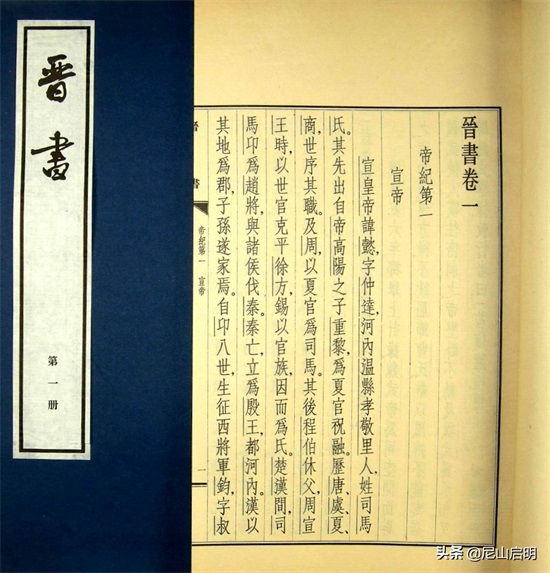 晋書
第一册
晉書卷一
帝紀第一
宣帝
宣皇帝諱懿,字仲達,河內溫縣孝敬里人,姓司馬
氏。其先出自帝高陽之子重黎,爲夏官祝融。歷唐、虞、夏、
商,世序其職。及周,以夏官爲司馬。其後程伯休父,周宣
王時,以世官克平徐方,錫以官族,因而爲氏。楚漢間,司
馬卬爲趙將,與諸侯伐秦。秦亡,立爲殷王,都河內。漢以
其地爲郡,子孫遂家焉。自卬八世,生征西將軍鈞,字叔
晉書
帝紀第一 宣帝
一
头条 @尼山启明